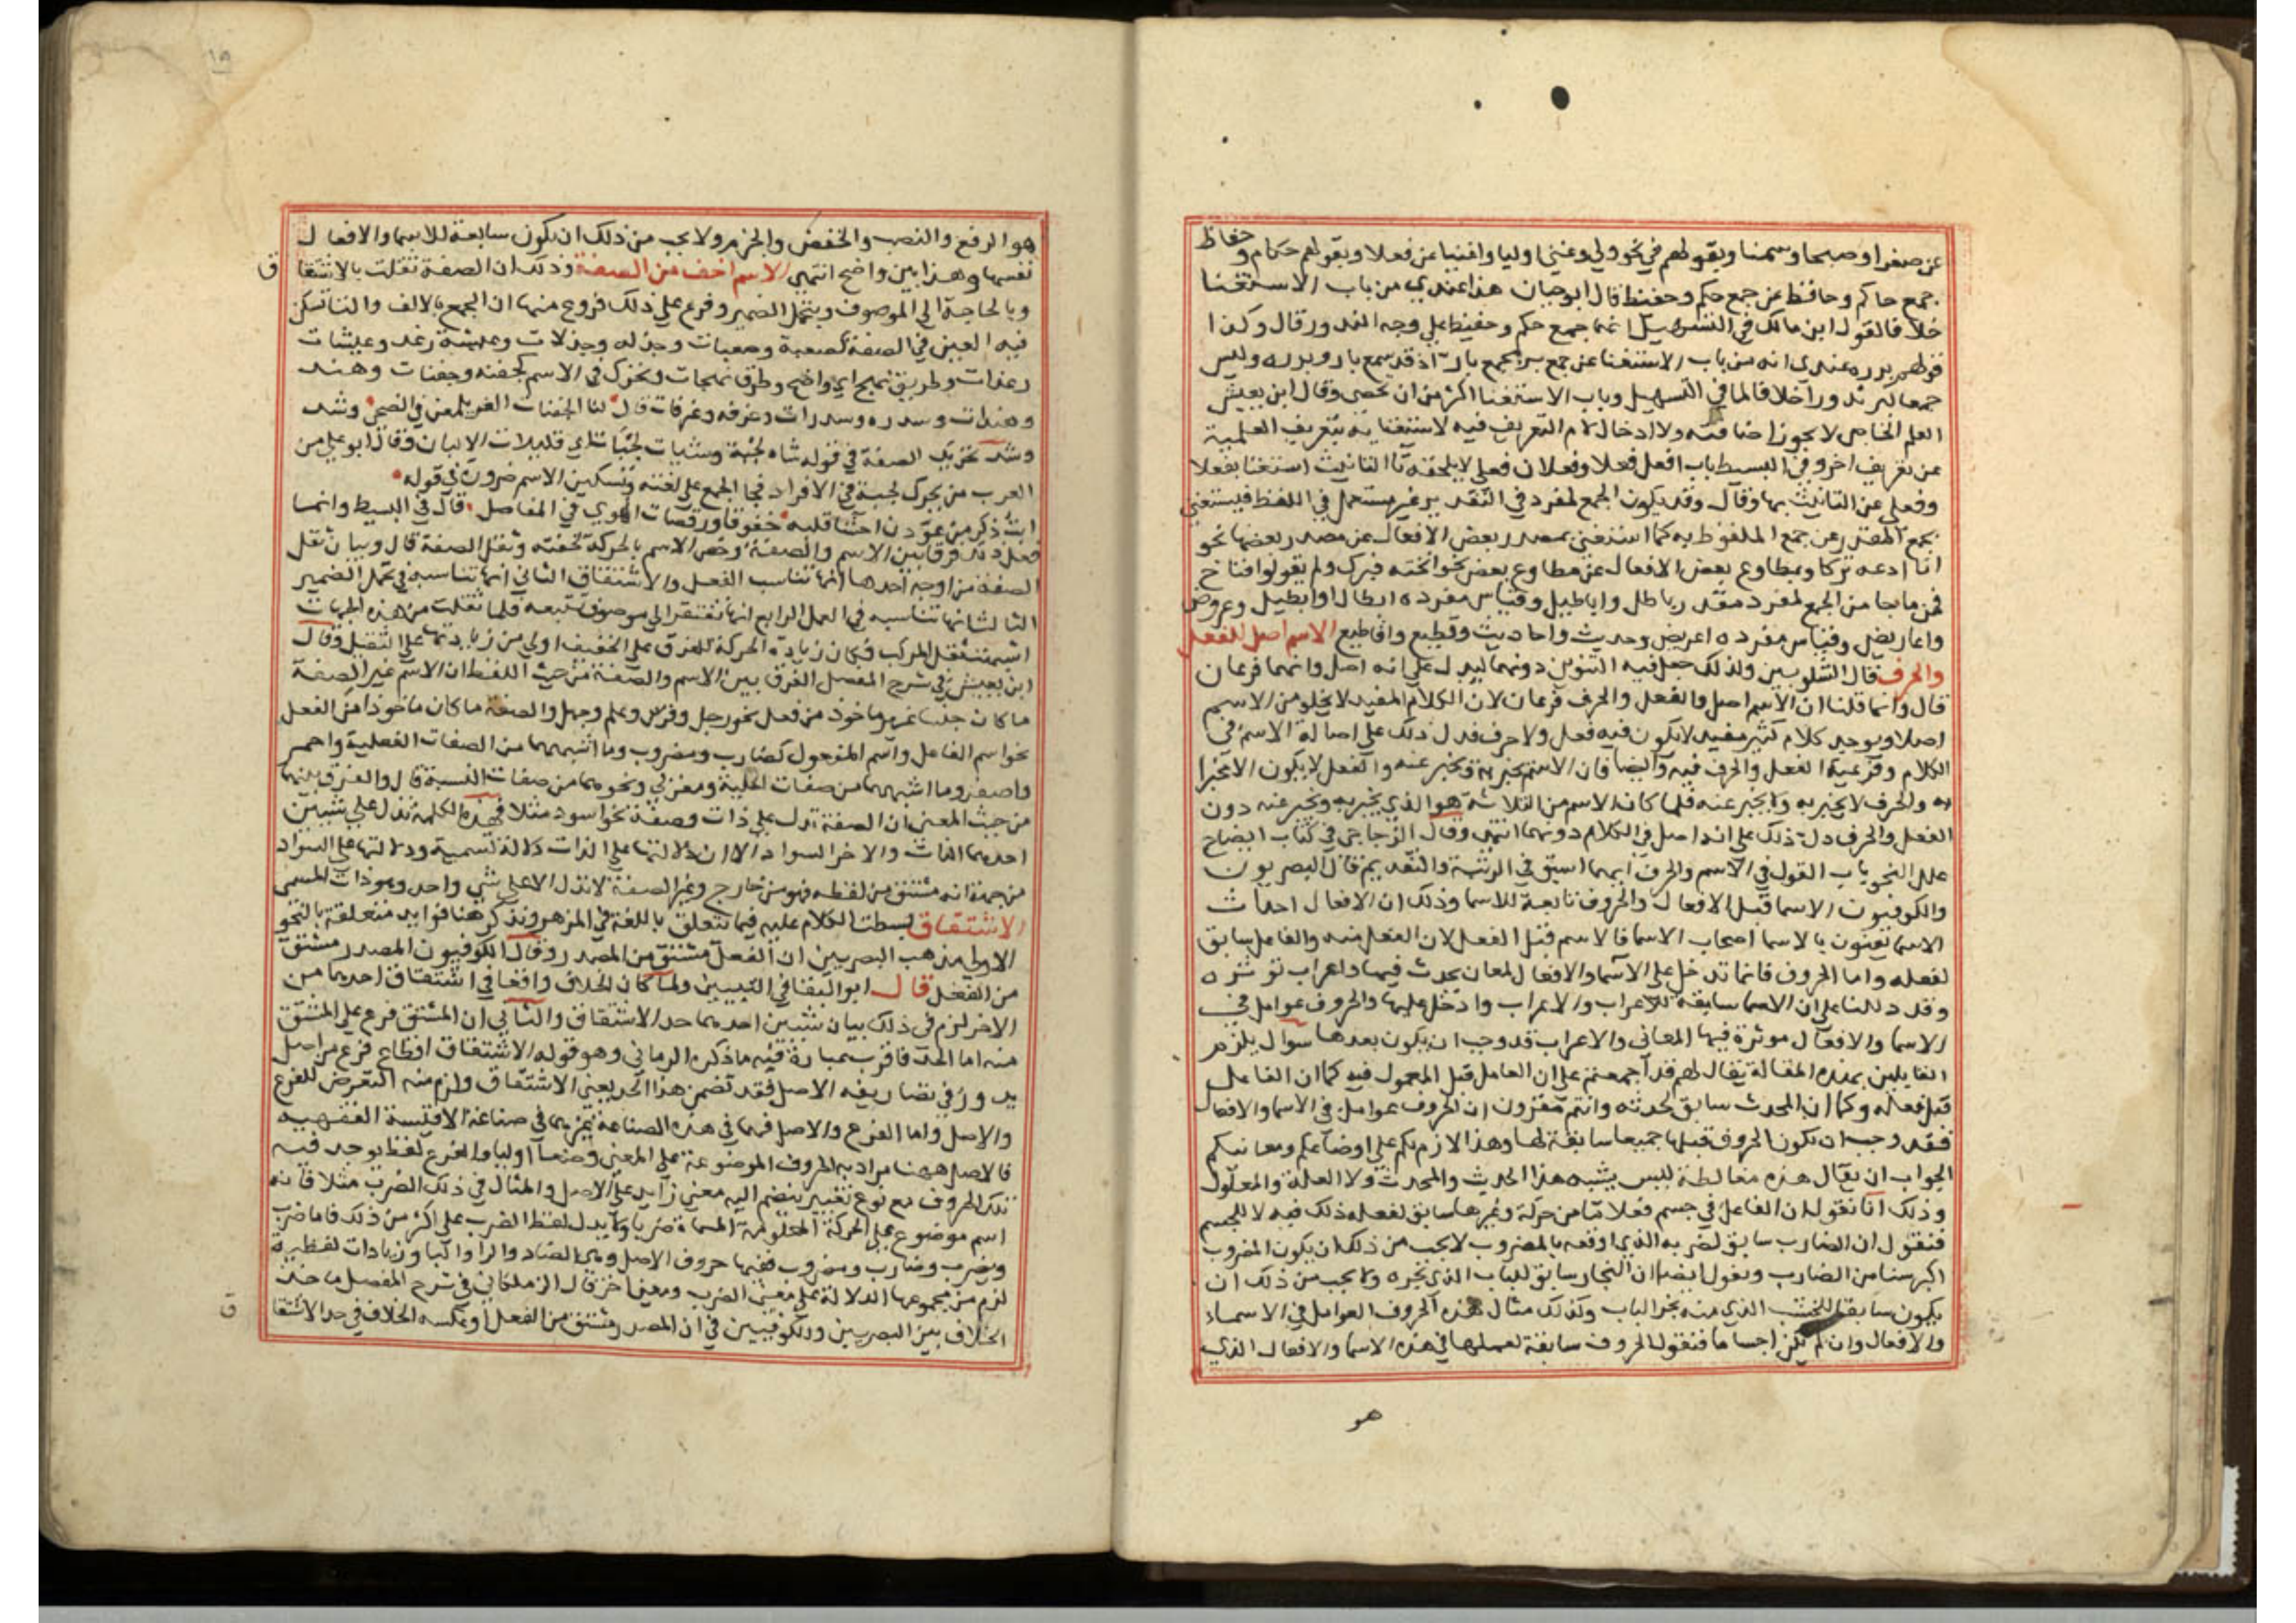 عن صغرا وصبحا وسمنا وبقولهم في نحو ولي وغني اوليا واغنيا عن فعلا وبقولهم حكام وحفاظ
جمع حاكم وحافظ عن جمع حكم وحفيظ قال ابو حيان هذا عندي من باب الاستغنا
خلافا لقول ابن مالك في التسهيل انما جمع حكم وحفيظ على وجه الندور قال وكذا
قولهم بررة عندي انه من باب الاستغنا عن جمع بر بجمع بار اذ قد سمع بار وبررة وليس
جمعا لبر ندورا خلافا لما في التسهيل وباب الاستغنا اكثر من ان يحصى وقال ابن يعيش
العلم الخاص لا يجوز اضافته ولا ادخال لام التعريف فيه لاستغنايه بتعريف العلمية
عن تعريف اخر وفي البسيط باب افعل فعلا وفعلان فعلى لا يلحقه تا التانيث استغنا بفعلا
وفعلى عن التانيث بها وقال وقد يكون الجمع لمفرد في التقدير غير مستعمل في اللفظ فيستغني
بجمع المقدر عن جمع الملفوظ به كما استغنى بمصدر بعض الافعال عن مصدر بعضها نحو
انا ادعه تركا وبمطاوع بعض الافعال عن مطاوع بعض نحو انخته فبرك ولم يقولوا فناخ
فمن ما جا من الجمع لمفرد مقدر باطل واباطيل وقياس مفرده ابطال او ابطيل وعروض
واعاريض وقياس مفرده اعريض وحديث واحاديث وقطيع واقاطيع الاسم اصل للفعل
والحرف قال الشلوبين ولذلك جعل فيه التنوين دونهما ليدل على انه اصل وانهما فرعان
قال وانما قلنا ان الاسم اصل والفعل والحرف فرعان لان الكلام المفيد لا يخلو من الاسم
اصلا ويوجد كلام كثير مفيد لا يكون فيه فعل ولا حرف فدل ذلك على اصالة الاسم في
الكلام وفرعية الفعل والحرف فيه وايضا فان الاسم يخبر به ويخبر عنه والفعل لا يكون الا مخبرا
به والحرف لا يخبر به ولا يخبر عنه فلما كان الاسم من الثلاثة هو الذي يخبر به ويخبر عنه دون
الفعل والحرف دل ذلك على انه اصل في الكلام دونهما انتهى وقال الزجاجي في كتاب ايضاح
علل النحو باب القول في الاسم والحرف ايهما اسبق في الرتبة والتقديم قال البصريون
والكوفيون الاسما قبل الافعال والحروف تابعة للاسما وذلك ان الافعال احداث
الاسما يعنون بالاسما اصحاب الاسما فالاسم قبل الفعل لان الفعل منه والفاعل سابق
لفعله واما الحروف فانما تدخل على الاسما والافعال لمعان يحدث فيها واعراب توثره
وقد دللنا على ان الاسما سابقة للاعراب والاعراب داخل عليها والحروف عوامل في
الاسما والافعال موثرة فيها المعاني والاعراب قد وجب ان يكون بعدها سوال يلزم
القايلين بهذه المقالة يقال لهم قد اجمعتم على ان العامل قبل المعمول فيه كما ان الفاعل
قبل فعله وكما ان المحدث سابق لحدثه وانتم مقرون ان الحروف عوامل في الاسما والافعال
فقد وجب ان يكون الحروف قبلها جميعا سابقة لها وهذا لازم لكم على اوضاعكم ومعانيكم
الجواب ان يقال هذه مغالطة ليس يشبه هذا الحديث والمحدث ولا العلة والمعلول
وذلك انا نقول ان الفاعل في جسم فعلا ما من حركة وغيرها سابق لفعله ذلك فيه لا للجسم
فنقول ان الضارب سابق لضربه الذي اوقعه بالمضروب لا يجب من ذلك ان يكون المضروب
اكبر سنا من الضارب ونقول ايضا ان النجار سابق للباب الذي نجره ولا يجب من ذلك ان
يكون سابقا للخشب الذي منه نجر الباب وكذلك مثال هذه الحروف العوامل في الاسماء
والافعال وان لم تكن اجساما فنقول الحروف سابقة لعملها في هذه الاسما والافعال الذي
هو
هو الرفع والنصب والخفض والجزم ولا يجب من ذلك ان يكون سابقة للاسما والافعال
نفسها وهذا بين واضح انتهى الاسم اخف من الصفة وذلك ان الصفة ثقلت بالاشتقاق
وبالحاجة الى الموصوف وبتحمل الضمير وفرع على ذلك فروع منها ان الجمع بالالف والتا تسكن
فيه العين في الصفة كصعبة وصعبات وجزله وجزلات وعيشة رغد وعيشات
رغدات وطريق نهج اي واضح وطرق نهجات وتحرك في الاسم كجفنة وجفنات وهند
وهندات وسدره وسدرات وغرفه وغرفات قال لنا الجفنات الغر يلمعن في الضحى وشد
وشد تحريك الصفة في قوله شاه لجبة وشيات لجبات اي قليلات الالبان وقال ابو علي من
العرب من يحرك لجبة في الافراد فجا الجمع على لغته وتسكين الاسم ضرورة في قوله
ابت ذكر من عودن احشا قلبه خفوقا ورقصات الهوى في المفاصل قال في البسيط وانما
فعل ذلك فرقا بين الاسم والصفة وخص الاسم بالحركة لخفته وثقل الصفة قال وبيان ثقل
الصفة من اوجه احدها انها تناسب الفعل والاشتقاق الثاني انها تناسبه في تحمل الضمير
الثالث انها تناسبه في العمل الرابع انها تفتقر الى موصوف تتبعه فلما ثقلت من هذه الجهات
اشبهت ثقل المركب فكان زيادة الحركة للفرق على الخفيف اولى من زيادتها على الثقيل وقال
ابن يعيش في شرح المفصل الفرق بين الاسم والصفة من حيث اللفظ ان الاسم غير الصفة
ما كان جنسا غير ماخوذ من فعل نحو رجل وفرس وعلم وجهل والصفة ما كان ماخوذا من الفعل
نحو اسم الفاعل واسم المفعول كضارب ومضروب وما اشبههما من الصفات الفعلية واحمر
واصفر وما اشبههما من صفات الحلية ومغربي ونحوهما من صفات النسبة قال والفرق بينهما
من حيث المعنى ان الصفة تدل على ذات وصفة نحو اسود مثلا فهذه الكلمة تدل على شيئين
احدهما الذات والاخر السواد الا ان دلالتها على الذات دلالة تسمية ودلالتها على السواد
من جهة انه مشتق من لفظه فهو من خارج وغير الصفة لا تدل الا على شي واحد وهو ذات المسمى
الاشتقاق بسطت الكلام عليه فيما يتعلق باللغة في المزهر ونذكر هنا فوايد متعلقة بالنحو
الاولى مذهب البصريين ان الفعل مشتق من المصدر وقال الكوفيون المصدر مشتق
من الفعل قال ابو البقا في التبيين ولما كان الخلاف واقعا في اشتقاق احدهما من
الاخر لزم في ذلك بيان شيئين احدهما حد الاشتقاق والثاني ان المشتق فرع على المشتق
منه اما الحد فاقرب عبارة فيه ما ذكره الرماني وهو قوله الاشتقاق اقتطاع فرع من اصل
يدور في تصاريفه الاصل فقد تضمن هذا الحد يعني الاشتقاق ولزم منه التعرض للفرع
والاصل واما الفرع والاصل فهما في هذه الصناعة غيرهما في صناعة الاقيسة الفقهيه
فالاصل ههنا يراد به الحروف الموضوعة على المعنى وضعا اوليا والفرع لفظ يوجد فيه
تلك الحروف مع نوع تغيير ينضم اليه معنى زايد على الاصل والمثال في ذلك الضرب مثلا فانه
اسم موضوع على الحركة المعلومة المسماة ضربا ولا يدل لفظ الضرب على اكثر من ذلك فاما ضرب
ويضرب وضارب ومضروب ففيها حروف الاصل وهي الضاد والرا والبا وزيادات لفظية
لزم من مجموعها الدلالة على معنى الضرب ومعنى اخر قال الزملكاني في شرح المفصل ماخذ
الخلاف بين البصريين والكوفيين في ان المصدر مشتق من الفعل او عكسه الخلاف في حد الاشتقاق